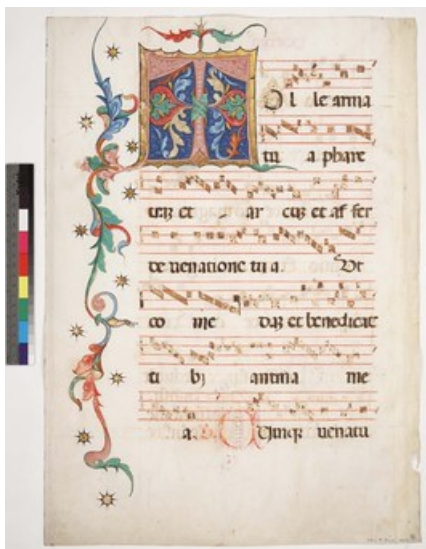 T ol le arma
tu a phare
traȝ et ar cuȝ et af fer
de uenatione tu a. Ut
co me daȝ et benedicat
ti bj anima me
a. Cunqȝ uenatu